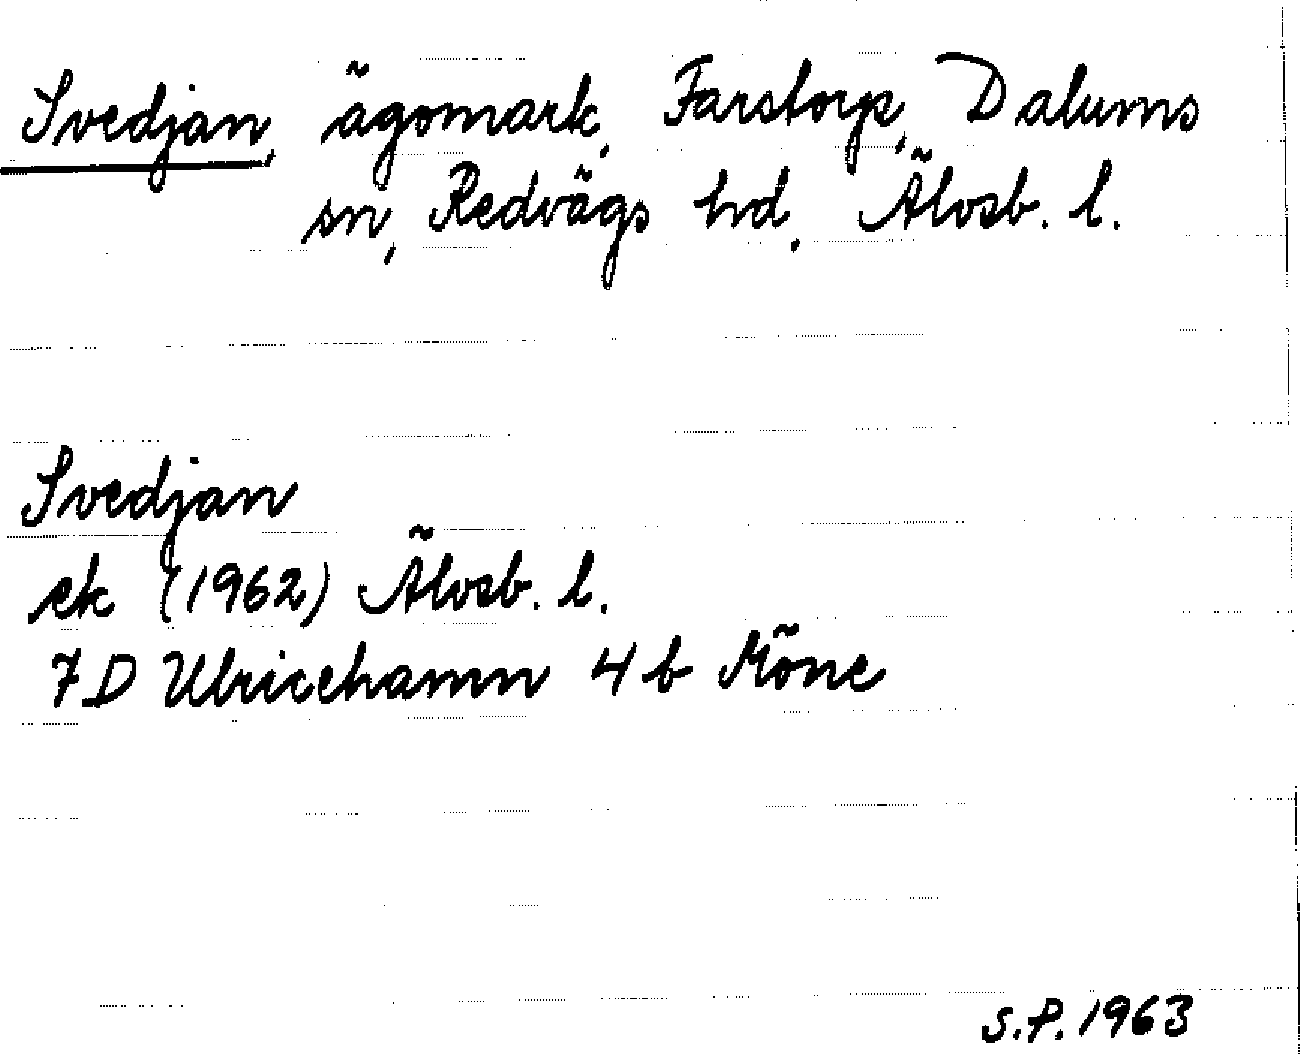 Svedjan, ägomark, Farstorp, Dalums
sn, Redvägs hd, Älvsb. l.
Svedjan
ek (1962) Älvsb. l.
7D Ulricehamn 4b Möne
S.P. 1963